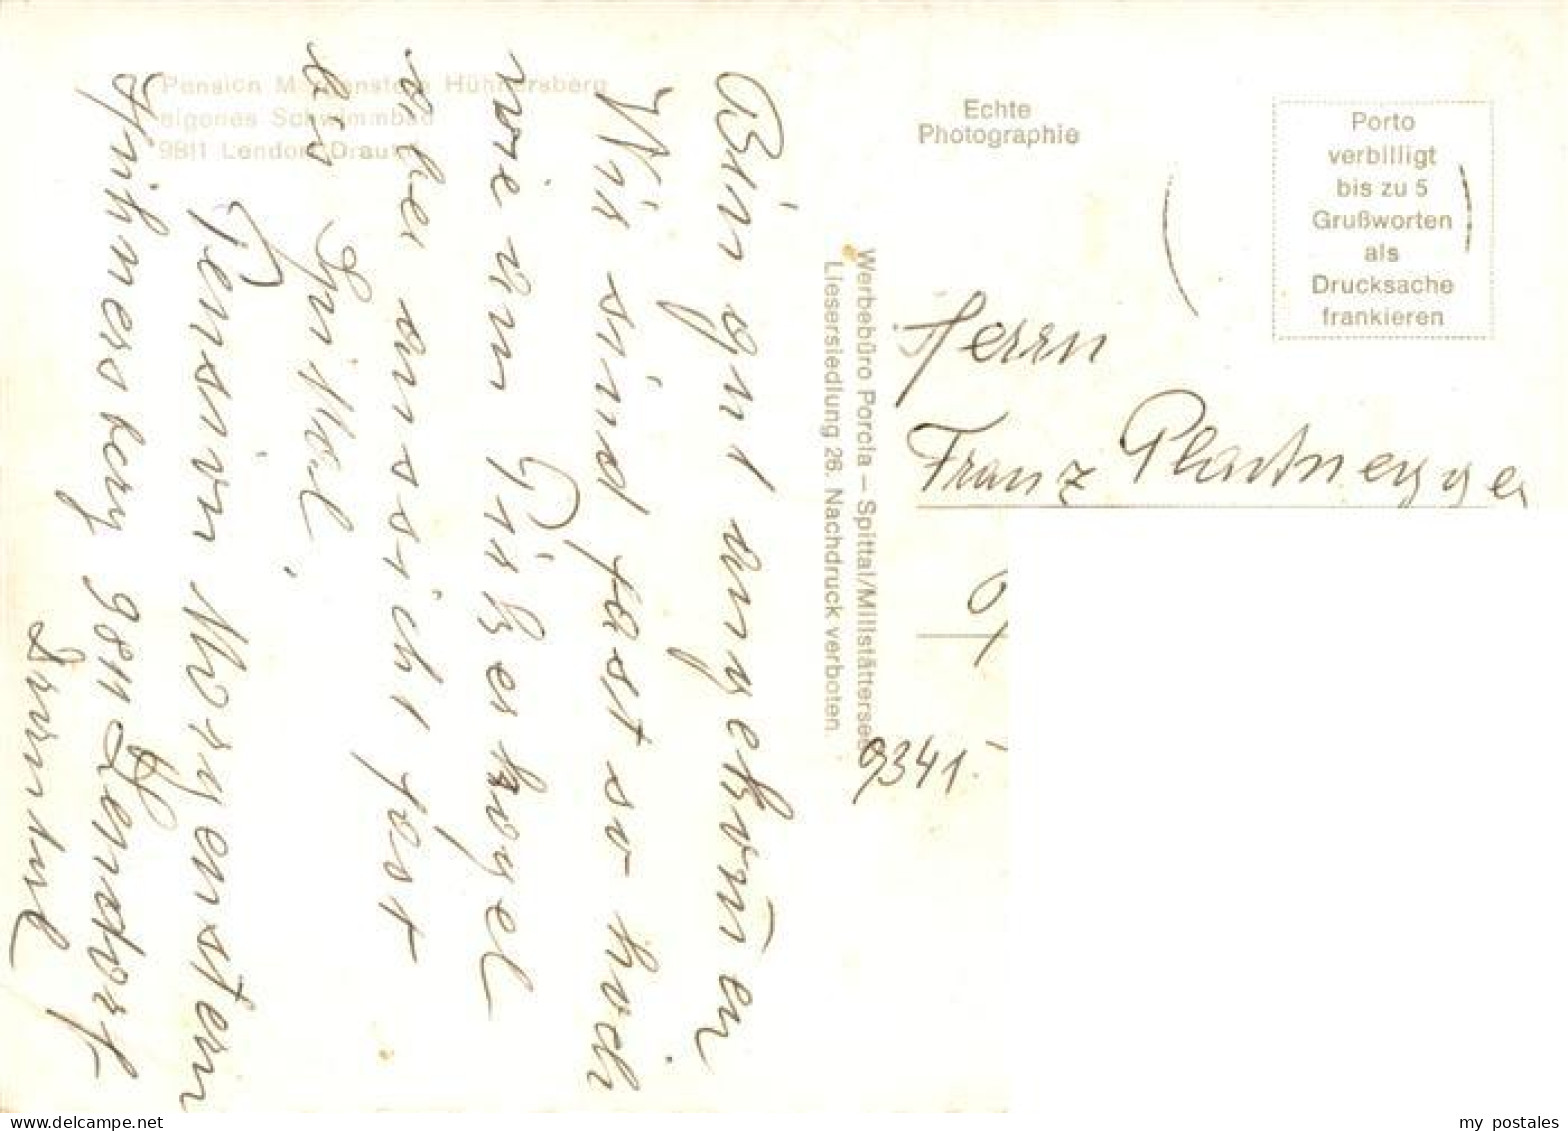 Pension Morgenstern Hühnersberg
eigenes Schwimmbad
9811 Lendorf/Drautal
Bin gut angekom̄en.
Wir sind fast so hoch
wie am
aber aussicht fast
bis Spittal.
Pension Morgenstern
Hühnersberg 9811 Lendorf
Werbebüro Porcia – Spittal/Millstättersee
Liesersiedlung 26. Nachdruck verboten.
Echte
Photographie
Porto
verbilligt
bis zu 5
Grußworten
als
Drucksache
frankieren
Herrn
Franz Plattnegger
9341
my postales